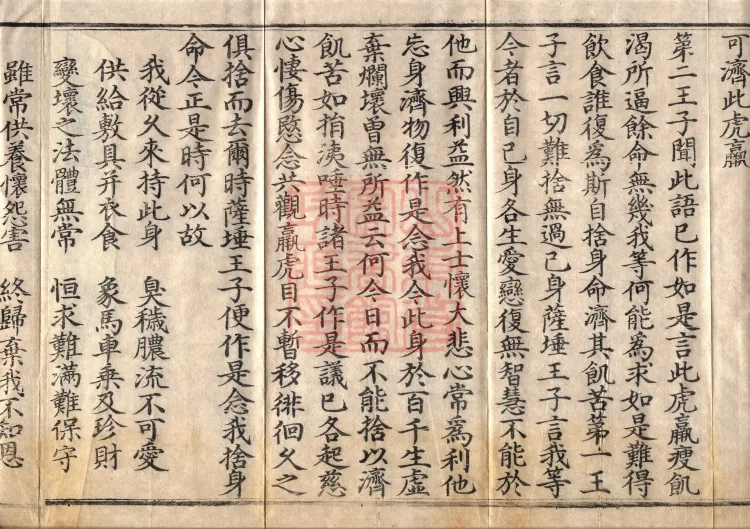 可濟此虎羸
第二王子聞此語已作如是言此虎羸瘦飢
渴所逼餘命無幾我等何能為求如是難得
飲食誰復為斯自捨身命濟其飢苦第一王
子言一切難捨無過己身薩埵王子言我等
今者於自己身各生愛戀復無智慧不能於
他而興利益然有上士懷大悲心常為利他
忘身濟物復作是念我今此身於百千生虛
棄爛壞曾無所益云何今日而不能捨以濟
飢苦如捐洟唾時諸王子作是議已各起慈
心悽傷愍念共觀羸虎目不暫移徘徊久之
俱捨而去爾時薩埵王子便作是念我捨身
命今正是時何以故
我從久來持此身 臭穢膿流不可愛
供給敷具并衣食 象馬車乘及珍財
變壞之法體無常 恒求難滿難保守
雖常供養懷怨害 終歸棄我不知恩